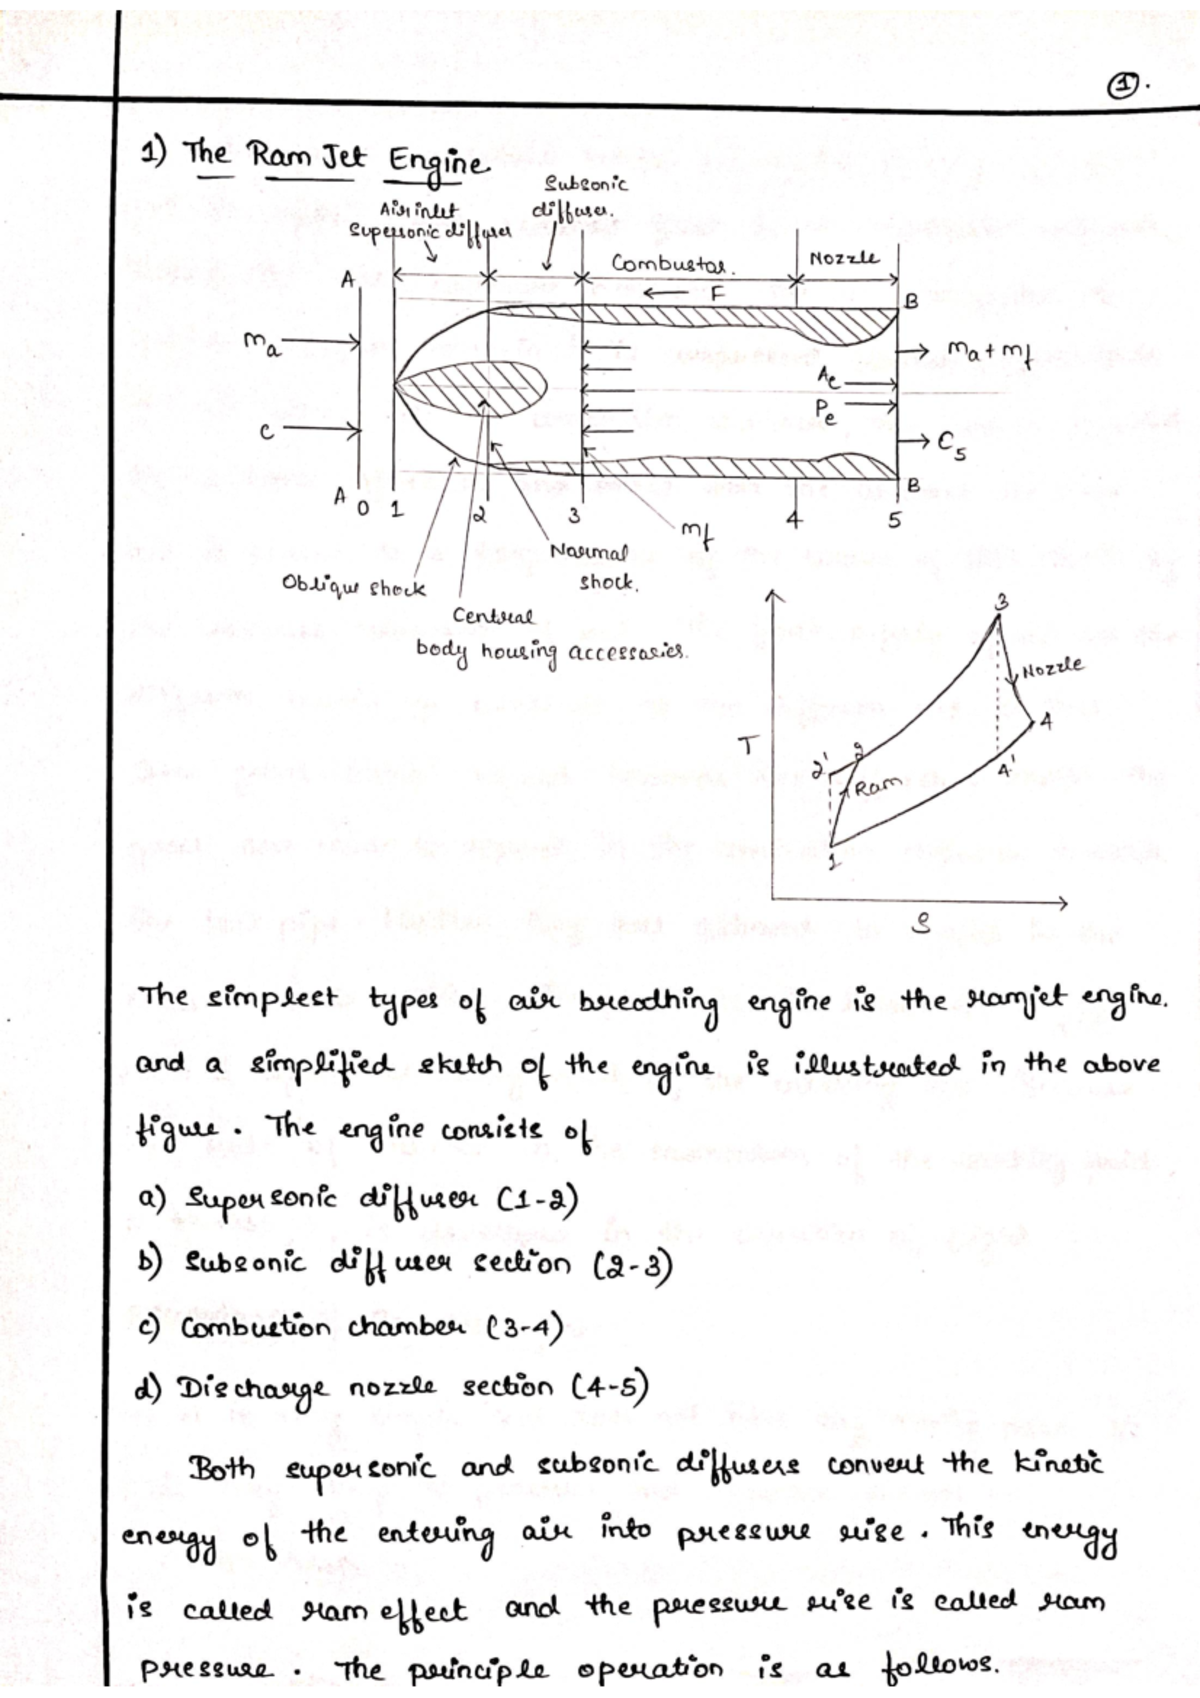 1.
1) The Ram Jet Engine
Subsonic
diffuser.
Air inlet
Supersonic diffuser
Combustor.
Nozzle
F
A
B
ma
ma + mf
Ae
Pe
c
C5
A
B
0 1 2 3 4 5
mf
Normal
shock.
Oblique shock
Central
body housing accessories.
3
Nozzle
4
T
2'
2
4'
Ram
1
S
The simplest types of air breathing engine is the ramjet engine.
and a simplified sketch of the engine is illustrated in the above
figure. The engine consists of
a) Supersonic diffuser (1-2)
b) Subsonic diffuser section (2-3)
c) Combustion chamber (3-4)
d) Discharge nozzle section (4-5)
Both supersonic and subsonic diffusers convert the kinetic
energy of the entering air into pressure rise. This energy
is called ram effect and the pressure rise is called ram
pressure. The principle operation is as follows.